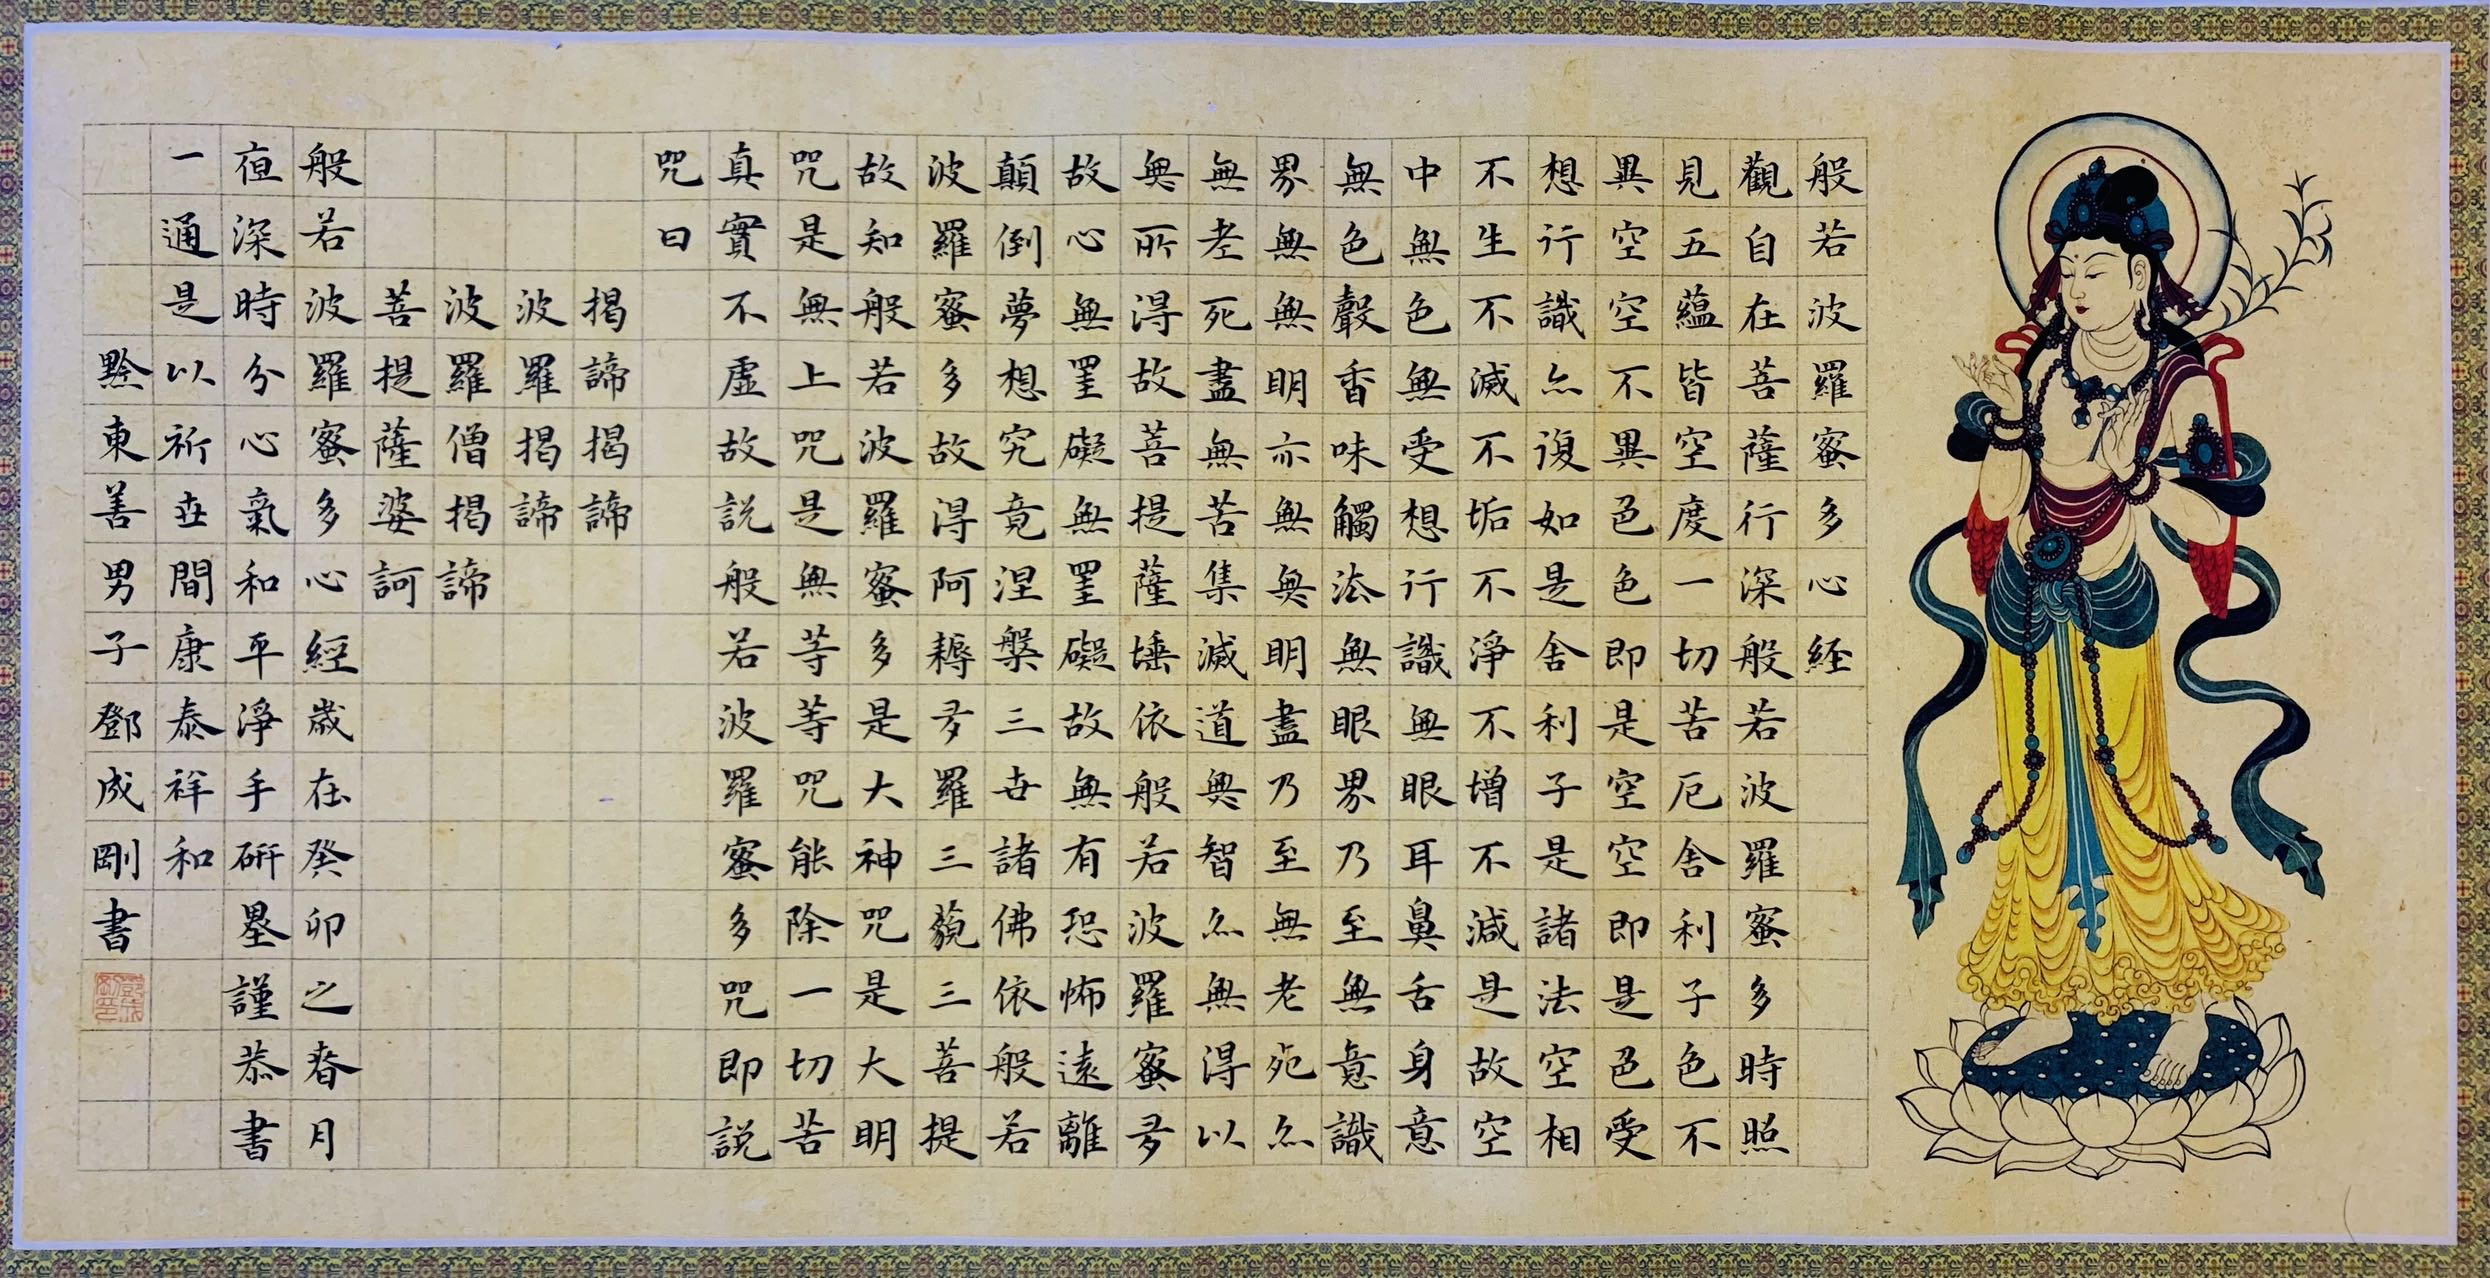 般若波羅蜜多心経
觀自在菩薩行深般若波羅蜜多時照
見五蘊皆空度一切苦厄舍利子色不
異空空不異色色即是空空即是色受
想行識亦復如是舍利子是諸法空相
不生不滅不垢不淨不增不減是故空
中無色無受想行識無眼耳鼻舌身意
無色聲香味觸法無眼界乃至無意識
界無無明亦無無明盡乃至無老死亦
無老死盡無苦集滅道無智亦無得以
無所得故菩提薩埵依般若波羅蜜多
故心無罣礙無罣礙故無有恐怖遠離
顛倒夢想究竟涅槃三世諸佛依般若
波羅蜜多故得阿耨多羅三藐三菩提
故知般若波羅蜜多是大神咒是大明
咒是無上咒是無等等咒能除一切苦
真實不虛故說般若波羅蜜多咒即說
咒曰
揭諦揭諦
波羅揭諦
波羅僧揭諦
菩提薩婆訶
般若波羅蜜多心經歲在癸卯之春月
夜深時分心氣和平淨手研墨謹恭書
一通是以祈世間康泰祥和
黔東善男子鄧成剛書
鄧成剛印